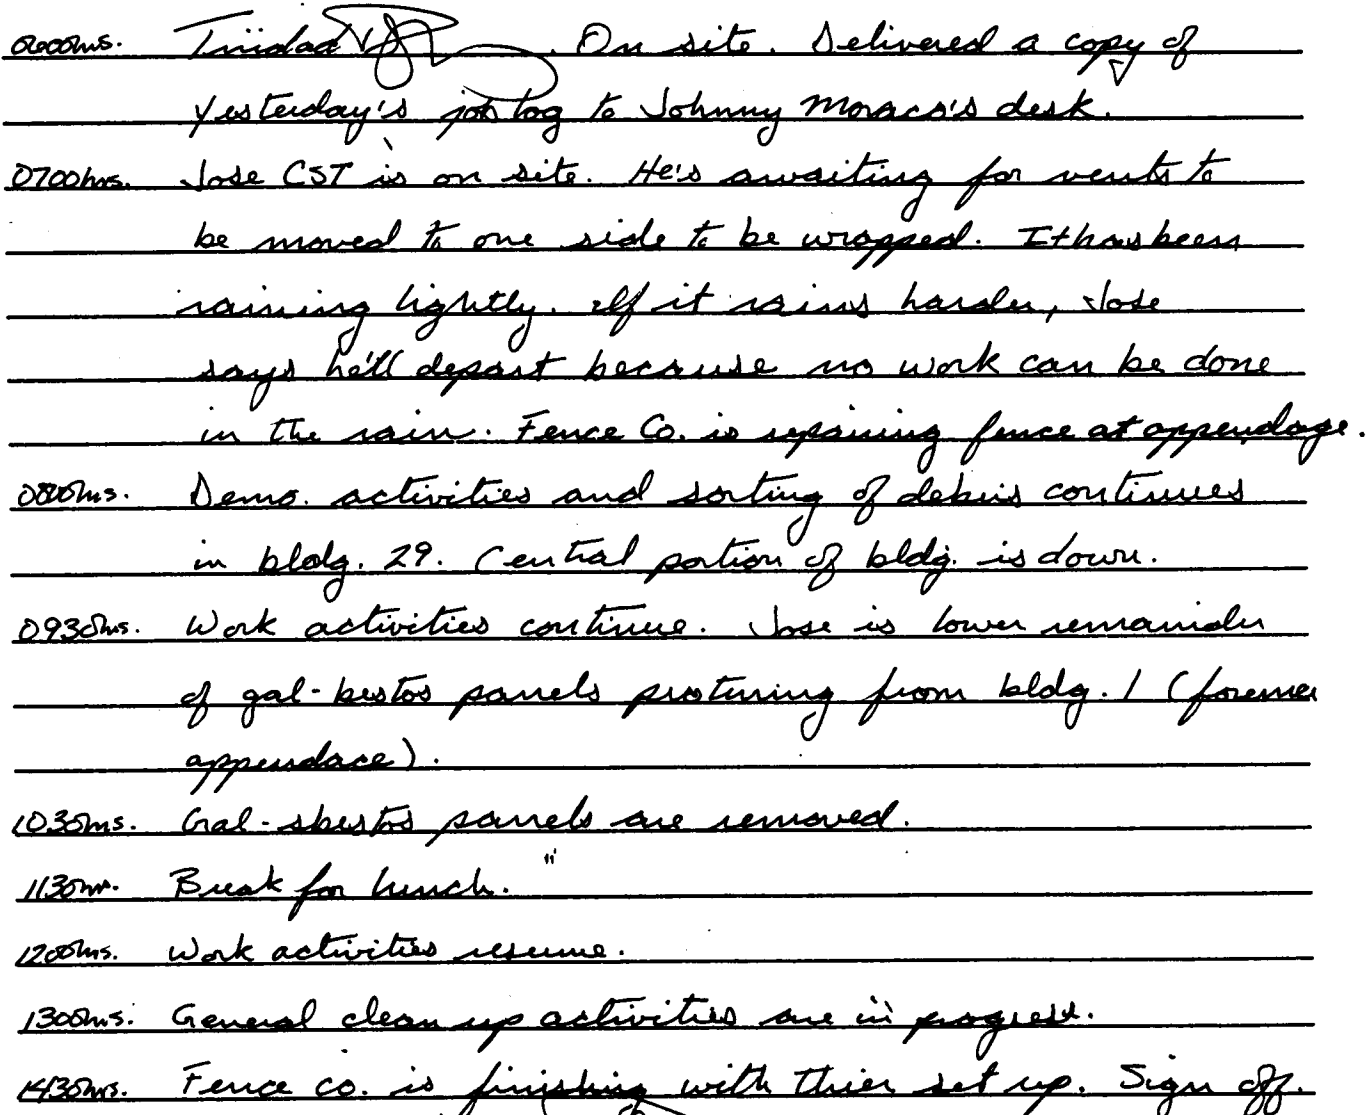 0600hrs. Trinidad . On site. Delivered a copy of
yesterday's job log to Johnny Moraco's desk.
0700hrs. Jose CST is on site. He's awaiting for vents to
be moved to one side to be wrapped. It has been
raining lightly. If it rains harder, Jose
says he'll depart because no work can be done
in the rain. Fence Co. is repairing fence at appendage.
0800hrs. Demo. activities and sorting of debris continues
in bldg. 29. Central portion of bldg. is down.
0930hrs. Work activities continue. Jose is lower remainder
of gal-bestos panels proturing from bldg. 1 (foremer
appendace).
1030hrs. Gal-sbestos panels are removed.
1130hr. Break for lunch.
1200hrs. Work activities resume.
1300hrs. General clean up activities are in progress.
1430hrs. Fence co. is finishing with thier set up. Sign off.